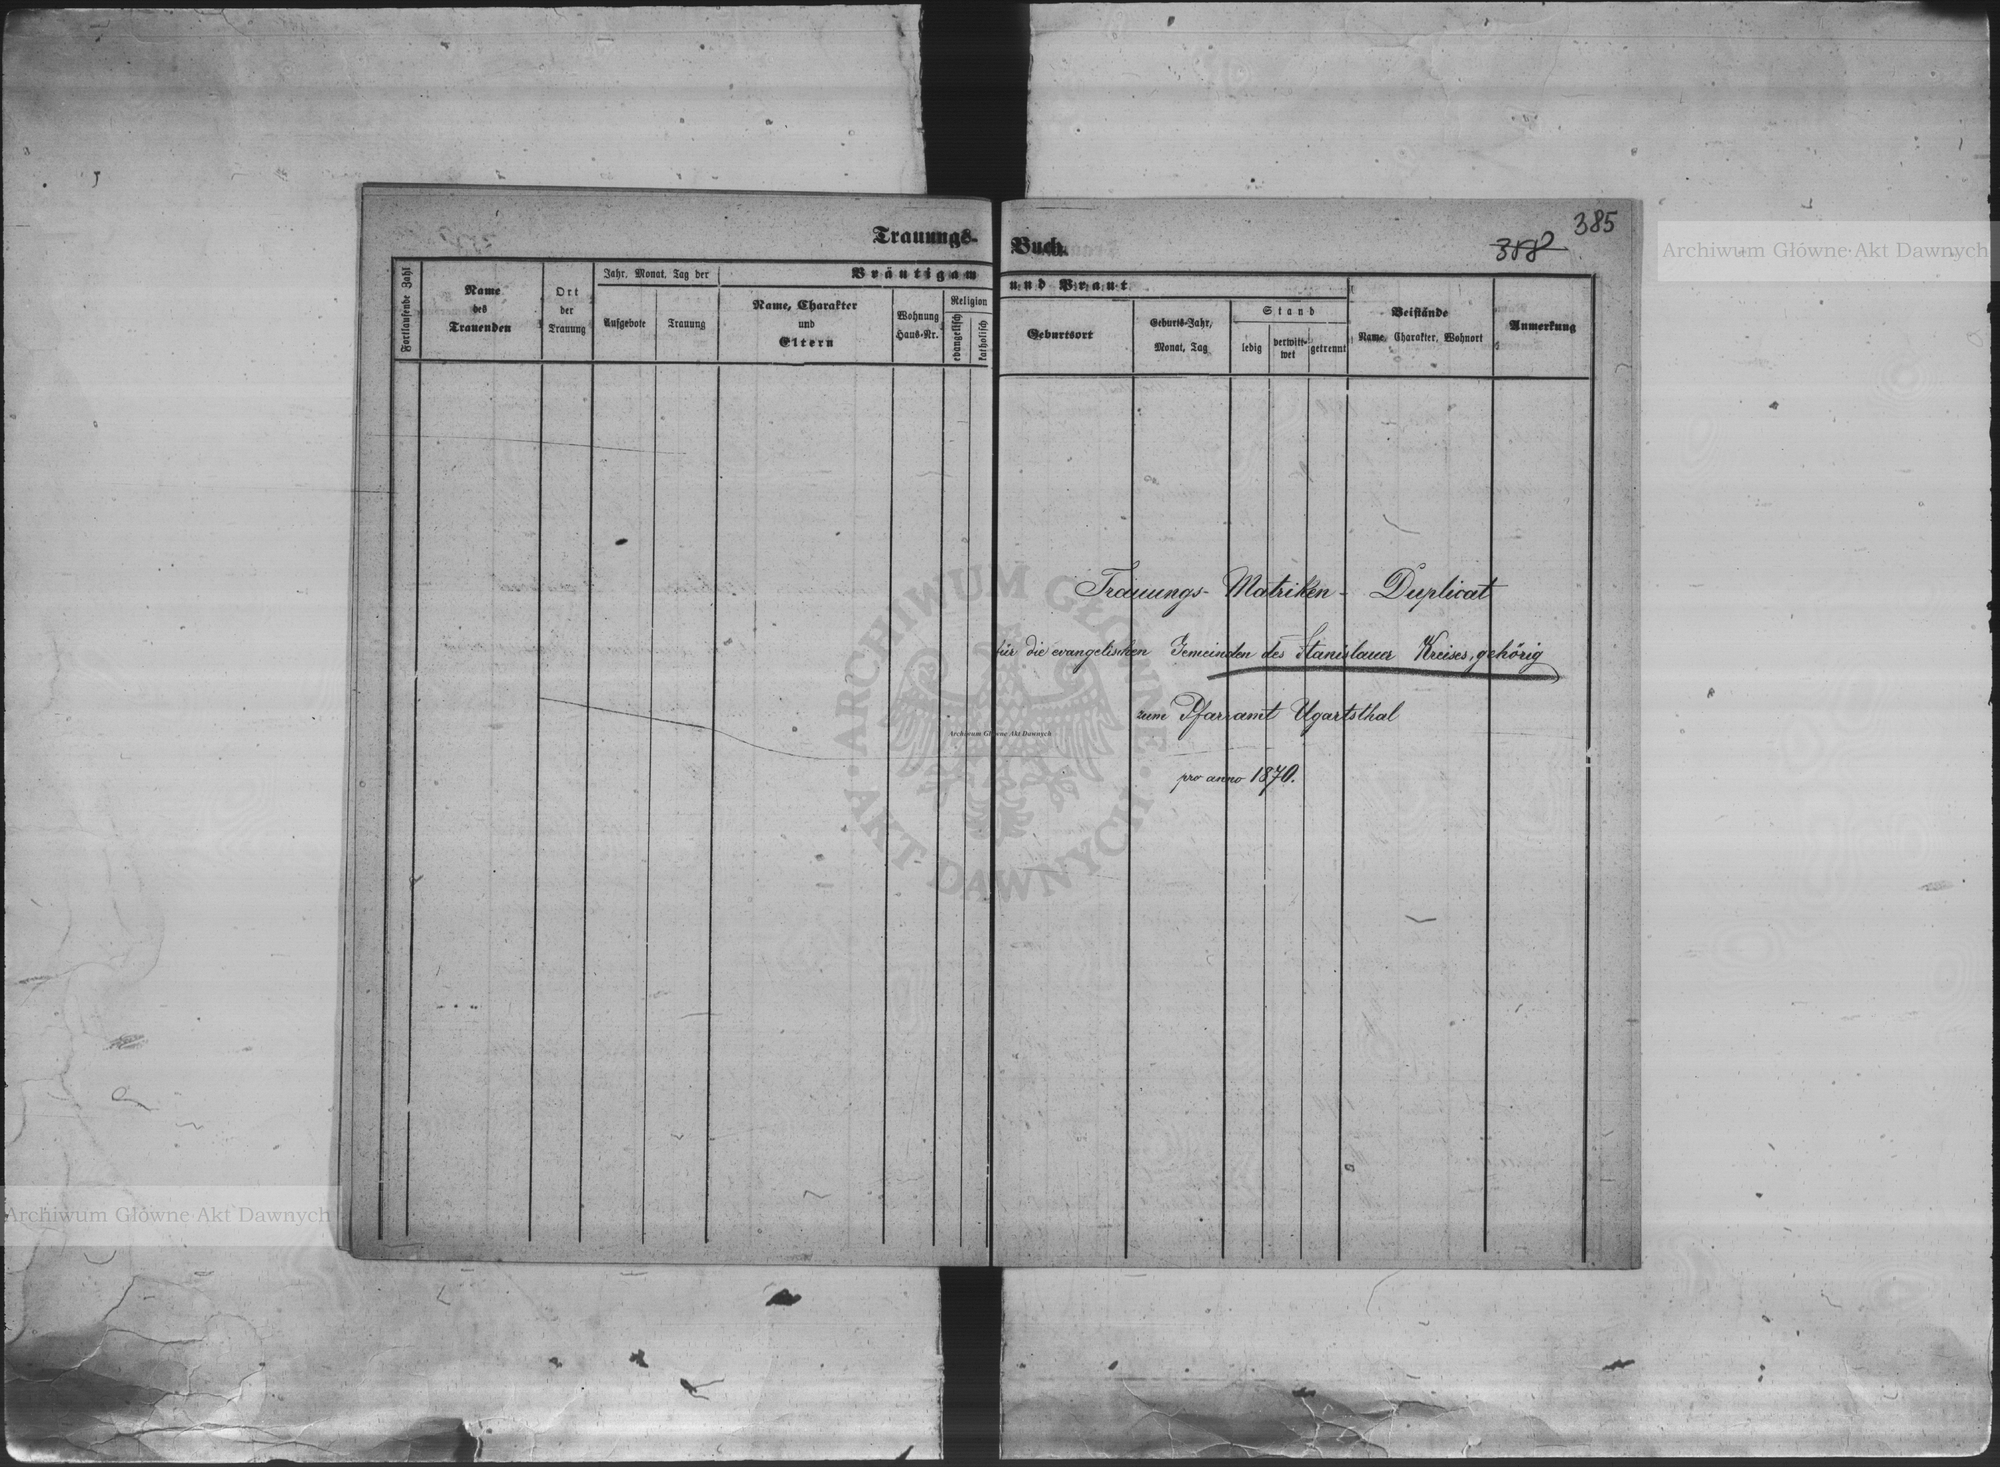 385
Trauungs-Buch.
Fortlaufende Zahl
Name
des
Trauenden
Ort
der
Trauung
Jahr, Monat, Tag der
Aufgebote
Trauung
Bräutigam und Braut
Name, Charakter
und
Eltern
Wohnung
Haus-Nr.
Religion
evangelisch
katholisch
Geburtsort
Geburts-Jahr,
Monat, Tag
Stand
ledig
verwitt-
wet
getrennt
Beistände
Name, Charakter, Wohnort
Anmerkung
Trauungs-Matriken-Duplicat
für die evangelischen Gemeinden des Stanislauer Kreises, gehörig
zum Pfarramt Ugartsthal
pro anno 1870.
Archiwum Główne Akt Dawnych
Archiwum Główne Akt Dawnych
Archiwum Główne Akt Dawnych
ARCHIWUM GŁÓWNE
AKT DAWNYCH